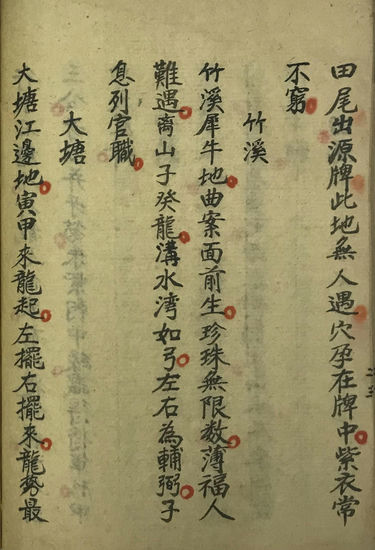 田尾出源牌此地無人遇穴孕在牌中紫衣常
不窮
竹溪
竹溪犀牛地曲案面前生珍珠無限数薄福人
難遇离山子癸龍溝水湾如弓左右為輔弼子
息列官職
大塘
大塘江邊地寅甲來龍起左擺右擺來龍勢最